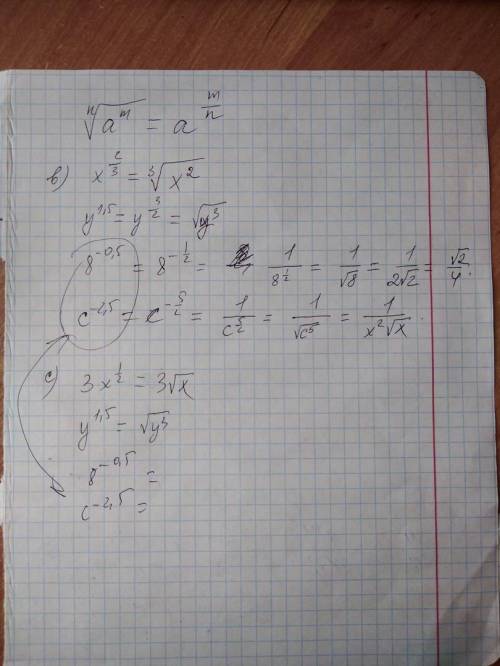 ⁿ√(aᵐ) = a^(m/n)
в) x^(2/3) = ³√(x²)
y^(1,5) = y^(3/2) = √(y³)
8^(-0,5) = 8^(-1/2) = 1/8^(1/2) = 1/√8 = 1/(2√2) = √2/4.
c^(-2,5) = c^(-5/2) = 1/c^(5/2) = 1/√(c⁵) = 1/(x²√x).
c) 3x^(1/2) = 3√x
y^(1,5) = √(y³)
8^(-0,5) =
c^(-2,5) =